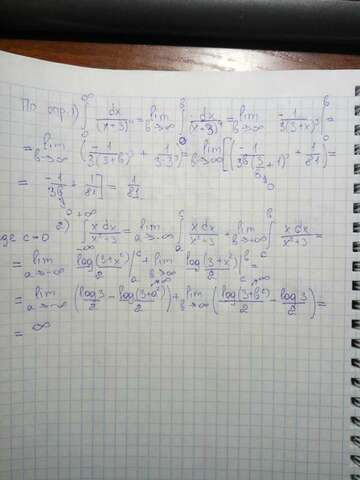 По опр. 1) ∫₀^∞ dx/(x+3)⁴ = lim_{b→∞} ∫₀^b dx/(x+3)⁴ = lim_{b→∞} -1/3(3+x)³ |₀^b =
= lim_{b→∞} (-1/3(3+b)³ + 1/3·3³) = lim_{b→∞} [( -1/3b(3/b+1)³ + 1/81 )] =
= -1/3b + 1/81] = 1/81
2) ∫_{-∞}^{+∞} x dx/x²+3 = lim_{a→-∞} ∫_a^c x dx/x²+3 + lim_{b→∞} ∫_c^b x dx/x²+3 =
где c=0
= lim_{a→-∞} log(3+x²)/2 |_a^c + lim_{b→∞} log(3+x²)/2 |_c^b =
= lim_{a→-∞} (log3/2 - log(3+a²)/2) + lim_{b→∞} (log(3+b²)/2 - log3/2) =
= ∞